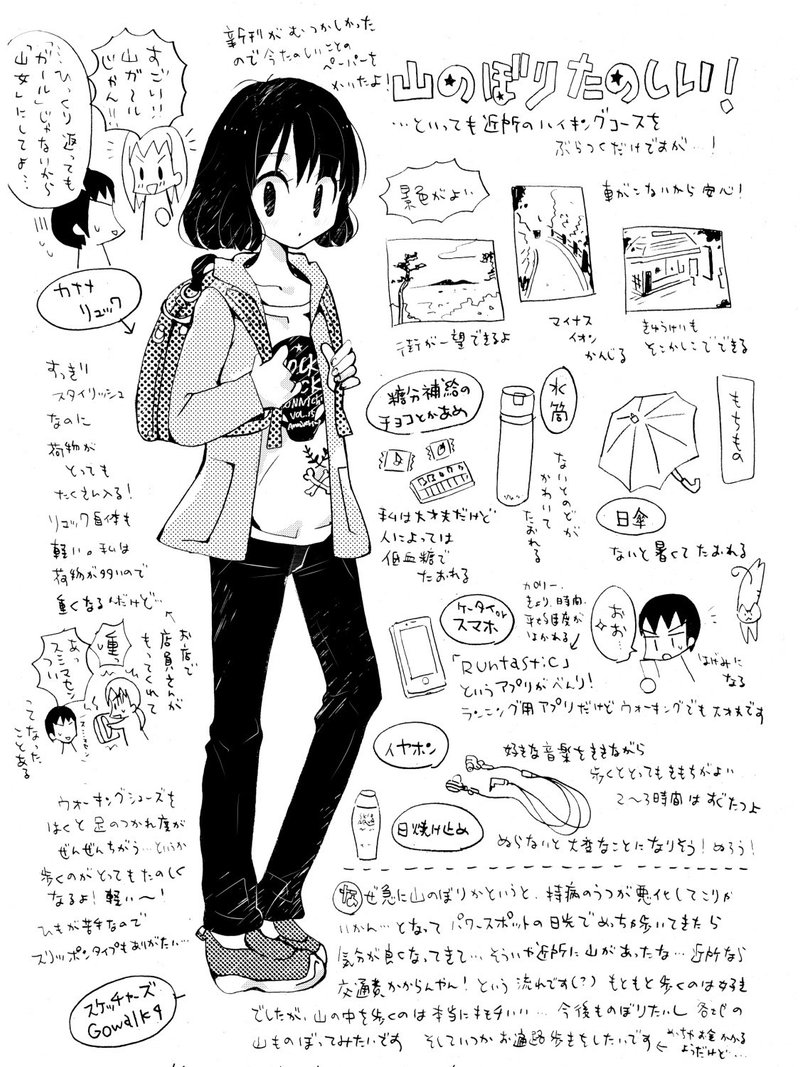 新刊がむつかしかった
ので今たのしいことの
ペーパーを
かいたよ!
山のぼりたのしい!
…といっても近所のハイキングコースを
ぶらつくだけですが…!
すごい!!
山ガール
じゃん!!
…ひっくり返っても
「ガール」じゃないから
「山女」にしてよ…
カナナ
リュック
すっきり
スタイリッシュ
なのに
荷物が
とっても
たくさん入る!
リュック自体も
軽い。私は
荷物が多いので
重くなるんだけど…
お店で
店員さんが
もってくれて
重っ
あっ
スミマセン
つい
ってなった
ことある
ウォーキングシューズを
はくと足のつかれ度が
ぜんぜんちがう…というか
歩くのがとてもたのしく
なるよ!軽い〜!
ひもが苦手なので
スリッポンタイプもありがたい…
スケッチャーズ
Gowalk4
景色がよい
街が一望できるよ
マイナス
イオン
かんじる
車がこないから安心!
きゅうけいも
そこかしこでできる
もちもの
日傘
ないと暑くてたおれる
水筒
ないとのどが
かわいて
たおれる
糖分補給の
チョコとかあめ
私は大丈夫だけど
人によっては
低血糖で
たおれる
ケータイor
スマホ
カロリー、
きょり、時間、
平均速度が
はかれる
「Runtastic」
というアプリがべんり!
ランニング用アプリだけどウォーキングでも大丈夫です
おお…
はげみに
なる
イヤホン
好きな音楽をききながら
歩くととってもきもちがよい
2〜3時間はすぐたつよ
日焼け止め
ぬらないと大変なことになりそう!ぬろう!
なぜ急に山のぼりかというと、持病のうつが悪化してこりゃ
いかん…となってパワースポットの日光でめっちゃ歩いてきたら
気分が良くなってきて…そういや近所に山があったな…近所なら
交通費かからんやん!という流れです(?)もともと歩くのは好き
でしたが、山の中を歩くのは本当にきもちいい…今後ものぼりたいし各地の
山ものぼってみたいです そしていつかお遍路歩きをしたいです←めっちゃお金かかる
ようだけど…